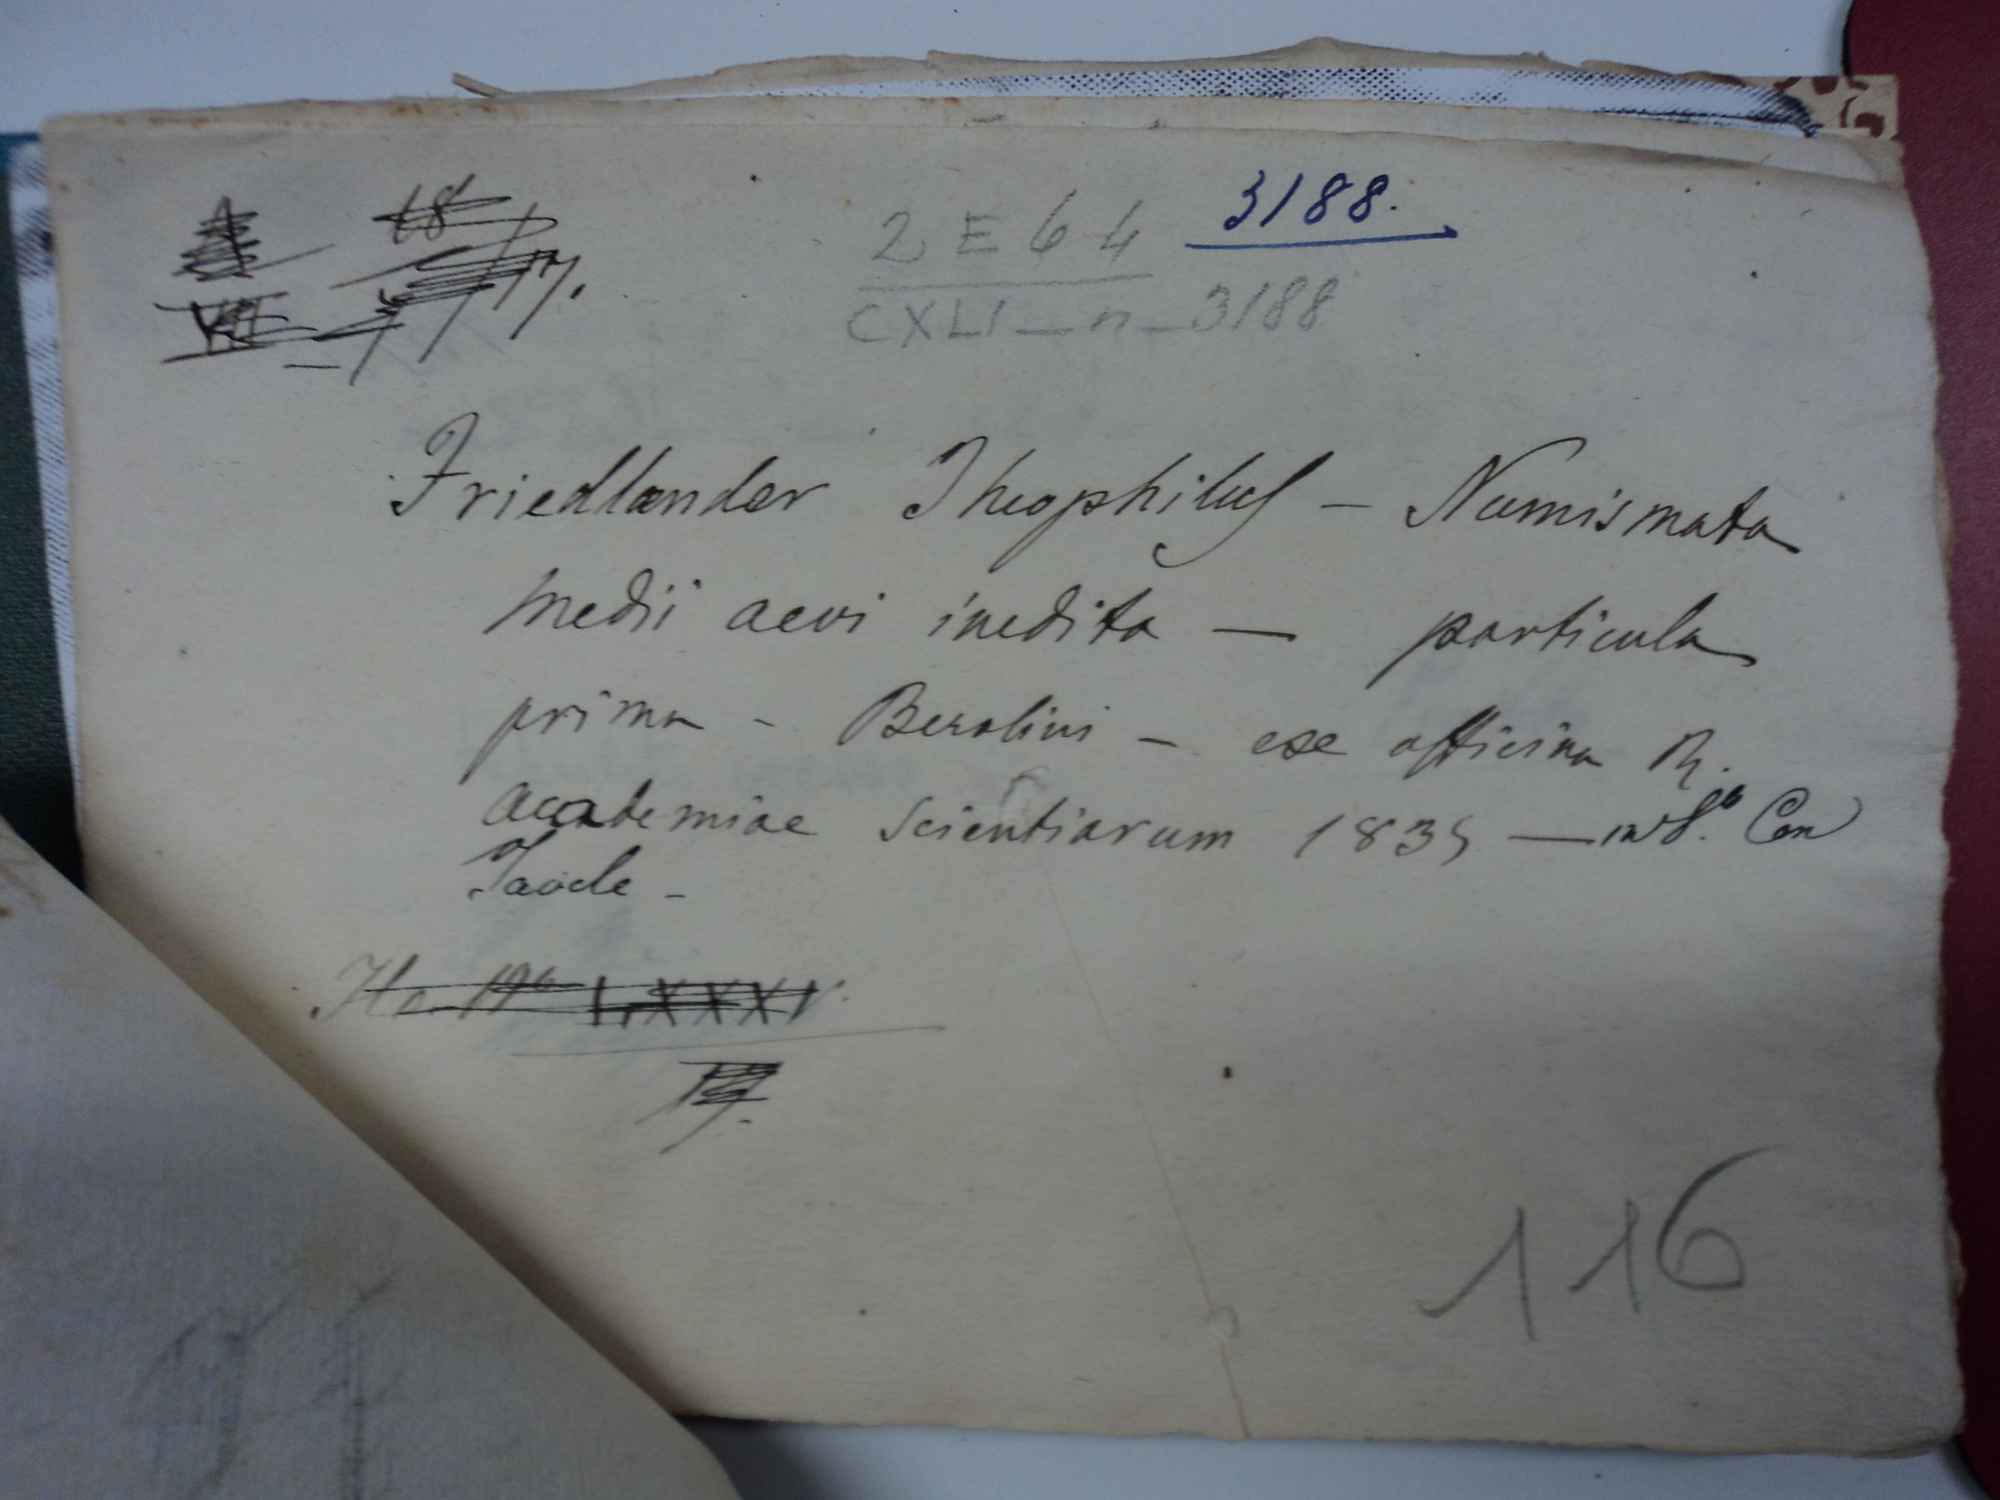 3188.
2 E 64
CXLI_n_3188
17.
Friedlander Theophilus - Numismata
medii aevi inedita - particula
prima - Berolini - exe officina R.
academiae scientiarum 1835 - in 8.° Con
Tavole -
116